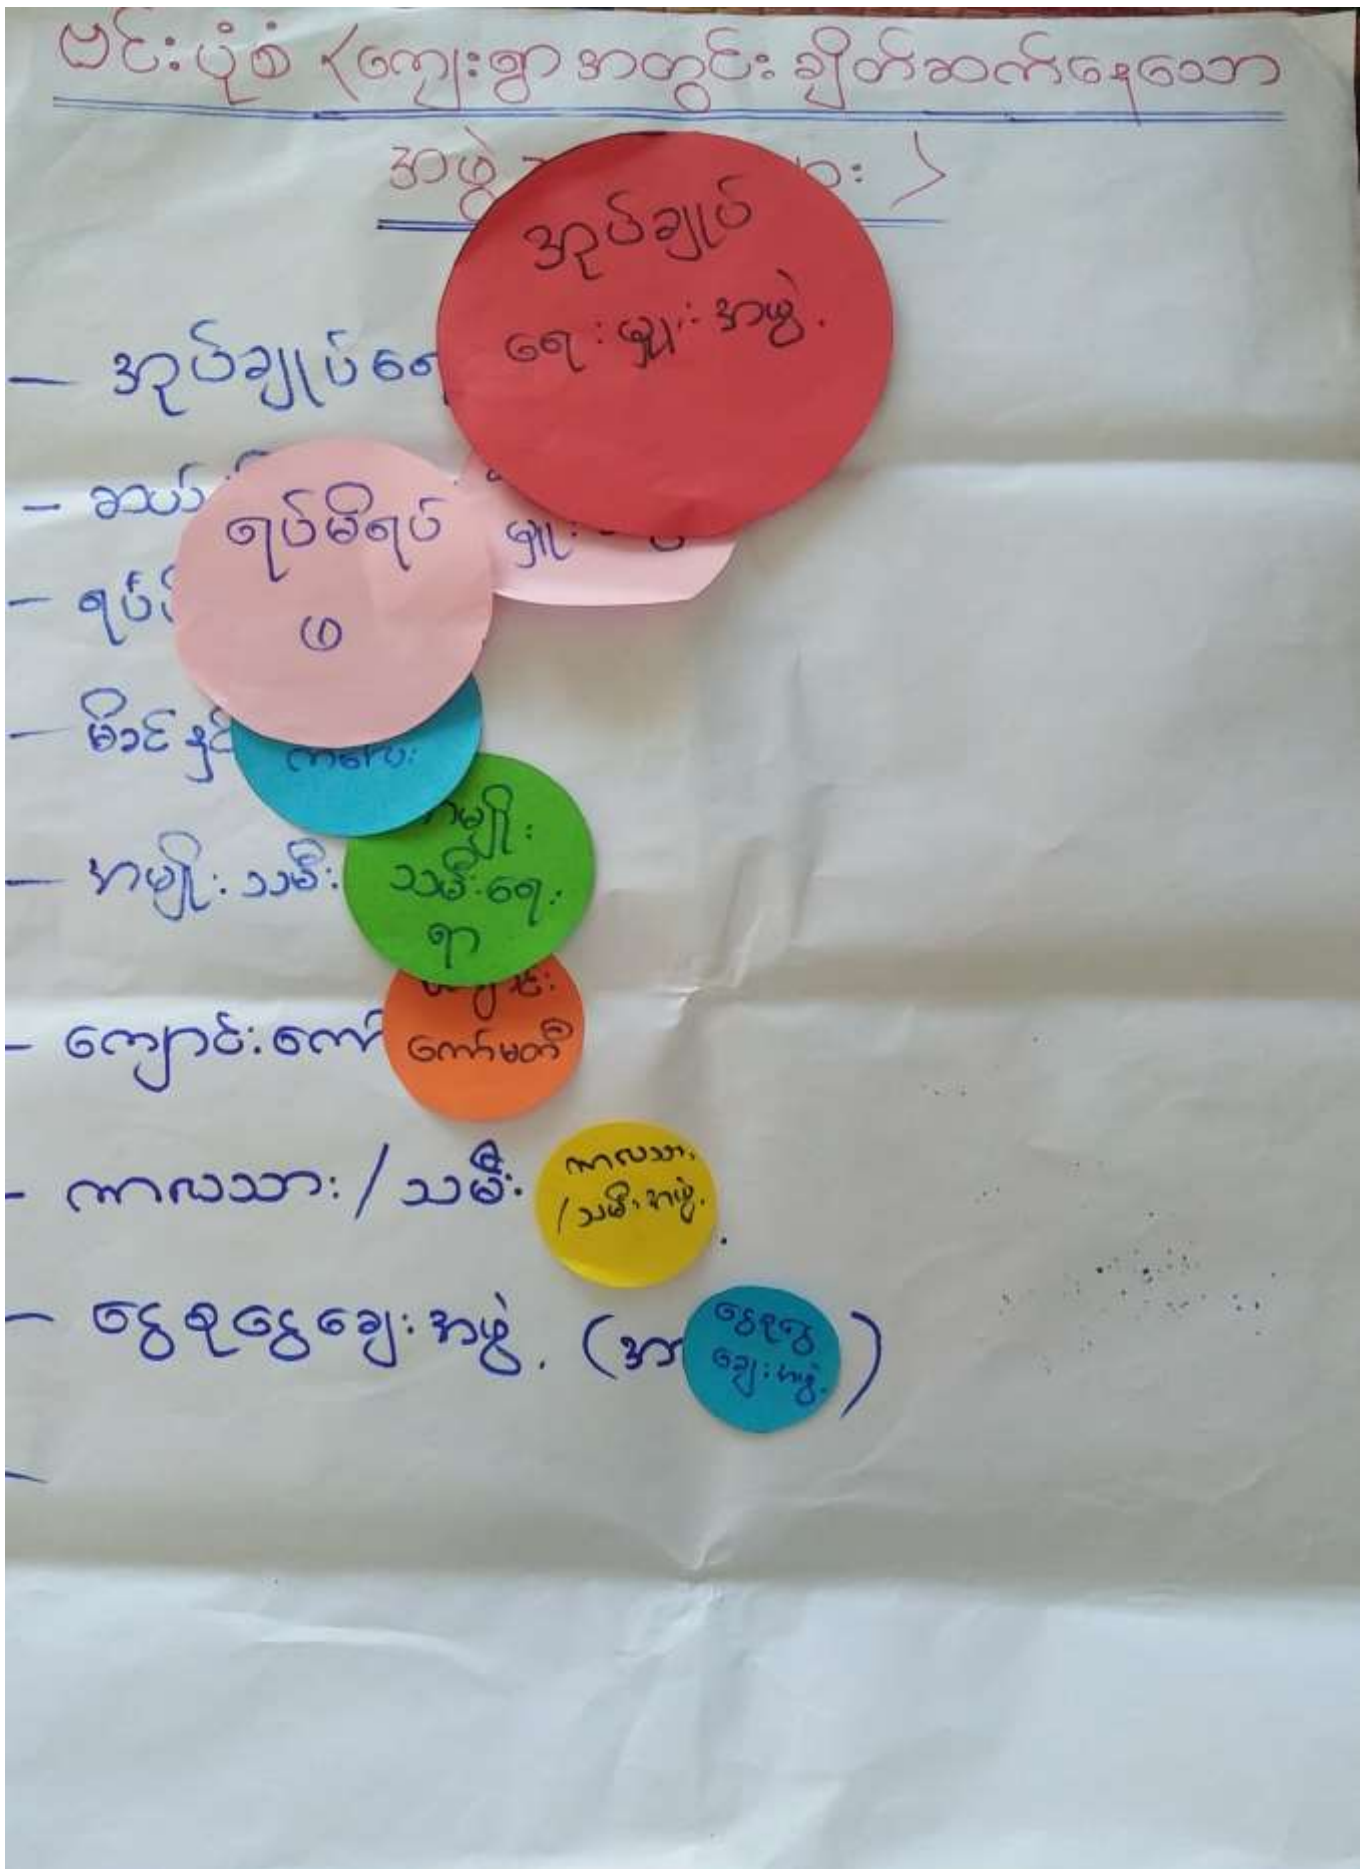 ဗင်းပုံစံ <ကျေးရွာအတွင်း ချိတ်ဆက်နေသော
အဖွဲ့ >
အုပ်ချုပ်
ရေးမှူးအဖွဲ့
- အုပ်ချုပ်ရေ
- ဆယ်
ရပ်မိရပ်
ဖ
မှူး
- ရပ်
- မိခင်နှင့်
ကလေး
အမျိုး
- အမျိုးသမီး
သမီးရေး
ရာ
ကျောင်း
- ကျောင်းကော်
ကော်မတီ
- ကာလသား/သမီး
ကာလသား
/သမီးအဖွဲ့
- ငွေစုငွေချေးအဖွဲ့. (အာ )
ငွေစုငွေ
ချေးအဖွဲ့
-